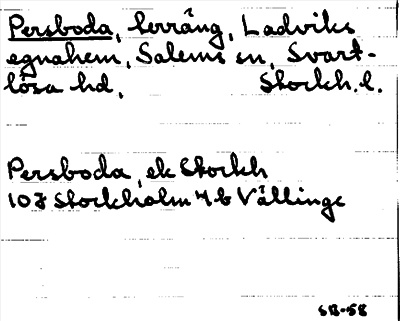 Persboda, herrång, Ladviks
egnahem, Salems sn, Svart-
lösa hd, Stockh. l.
Persboda, ek Stockh
10J Stockholm 4b Vällinge
SB-58